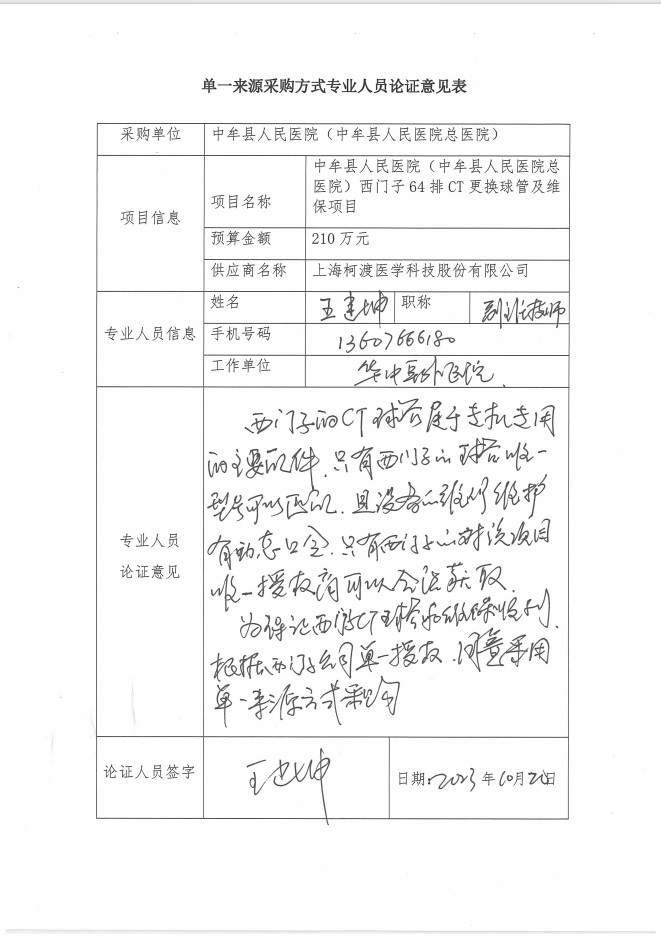 单一来源采购方式专业人员论证意见表
采购单位 中牟县人民医院（中牟县人民医院总医院）
项目信息
项目名称
中牟县人民医院（中牟县人民医院总
医院）西门子 64 排 CT 更换球管及维
保项目
预算金额 210 万元
供应商名称 上海柯渡医学科技股份有限公司
专业人员信息
姓名 王建坤 职称 副主任技师
手机号码 13607666180
工作单位 华中阜外医院
专业人员
论证意见
西门子的CT球管属于专机专用
的主要配件，只有西门子的球管唯一
型号可以匹配，且设备的维修维护
有动态口令，只有西门子的对该项目
唯一授权商可以合法获取。
为保证西门子CT球管和维保顺利，
根据西门子公司单一授权，同意采用
单一来源方式采购
论证人员签字 王建坤 日期：2023年10月 日